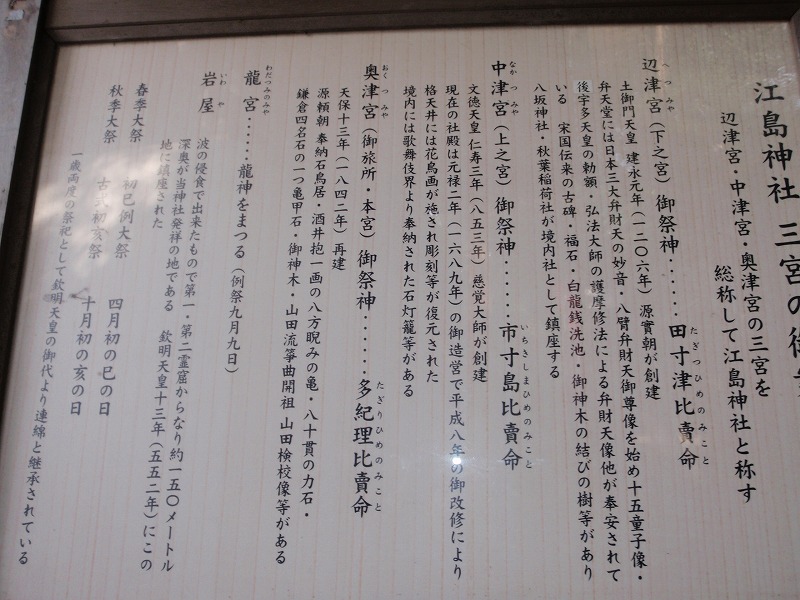 江島神社 三宮の御
辺津宮・中津宮・奥津宮の三宮を
総称して江島神社と称す
辺津宮（下之宮）御祭神・・・・・・田寸津比賣命
へつみや
たぎつひめのみこと
土御門天皇 建永元年（一二〇六年）源實朝が創建
弁天堂には日本三大弁財天の妙音・八臂弁財天御尊像を始め十五童子像・
後宇多天皇の勅額・弘法大師の護摩修法による弁財天像他が奉安されて
いる 宋国伝来の古碑・福石・白龍銭洗池・御神木の結びの樹等があり
八坂神社・秋葉稲荷社が境内社として鎮座する
中津宮（上之宮）御祭神・・・・・・市寸島比賣命
なかつみや
いちきしまひめのみこと
文徳天皇 仁寿三年（八五三年）慈覚大師が創建
現在の社殿は元禄二年（一六八九年）の御造営で平成八年の御改修により
格天井には花鳥画が施され彫刻等が復元された
境内には歌舞伎界より奉納された石灯籠等がある
奥津宮（御旅所・本宮）御祭神・・・・・・多紀理比賣命
おくつみや
たぎりひめのみこと
天保十三年（一八四二年）再建
源頼朝 奉納石鳥居・酒井抱一画の八方睨みの亀・八十貫の力石・
鎌倉四名石の一つ亀甲石・御神木・山田流箏曲開祖 山田検校像等がある
龍宮・・・・・・龍神をまつる（例祭九月九日）
わだつみのみや
岩屋
いわや
波の侵食で出来たもので第一・第二霊窟からなり約一五〇メートル
深奥が当神社発祥の地である 欽明天皇十三年（五五二年）にこの
地に鎮座された
春季大祭 初巳例大祭 四月初の巳の日
秋季大祭 古式初亥祭 十月初の亥の日
一歳両度の祭祀として欽明天皇の御代より連綿と継承されている